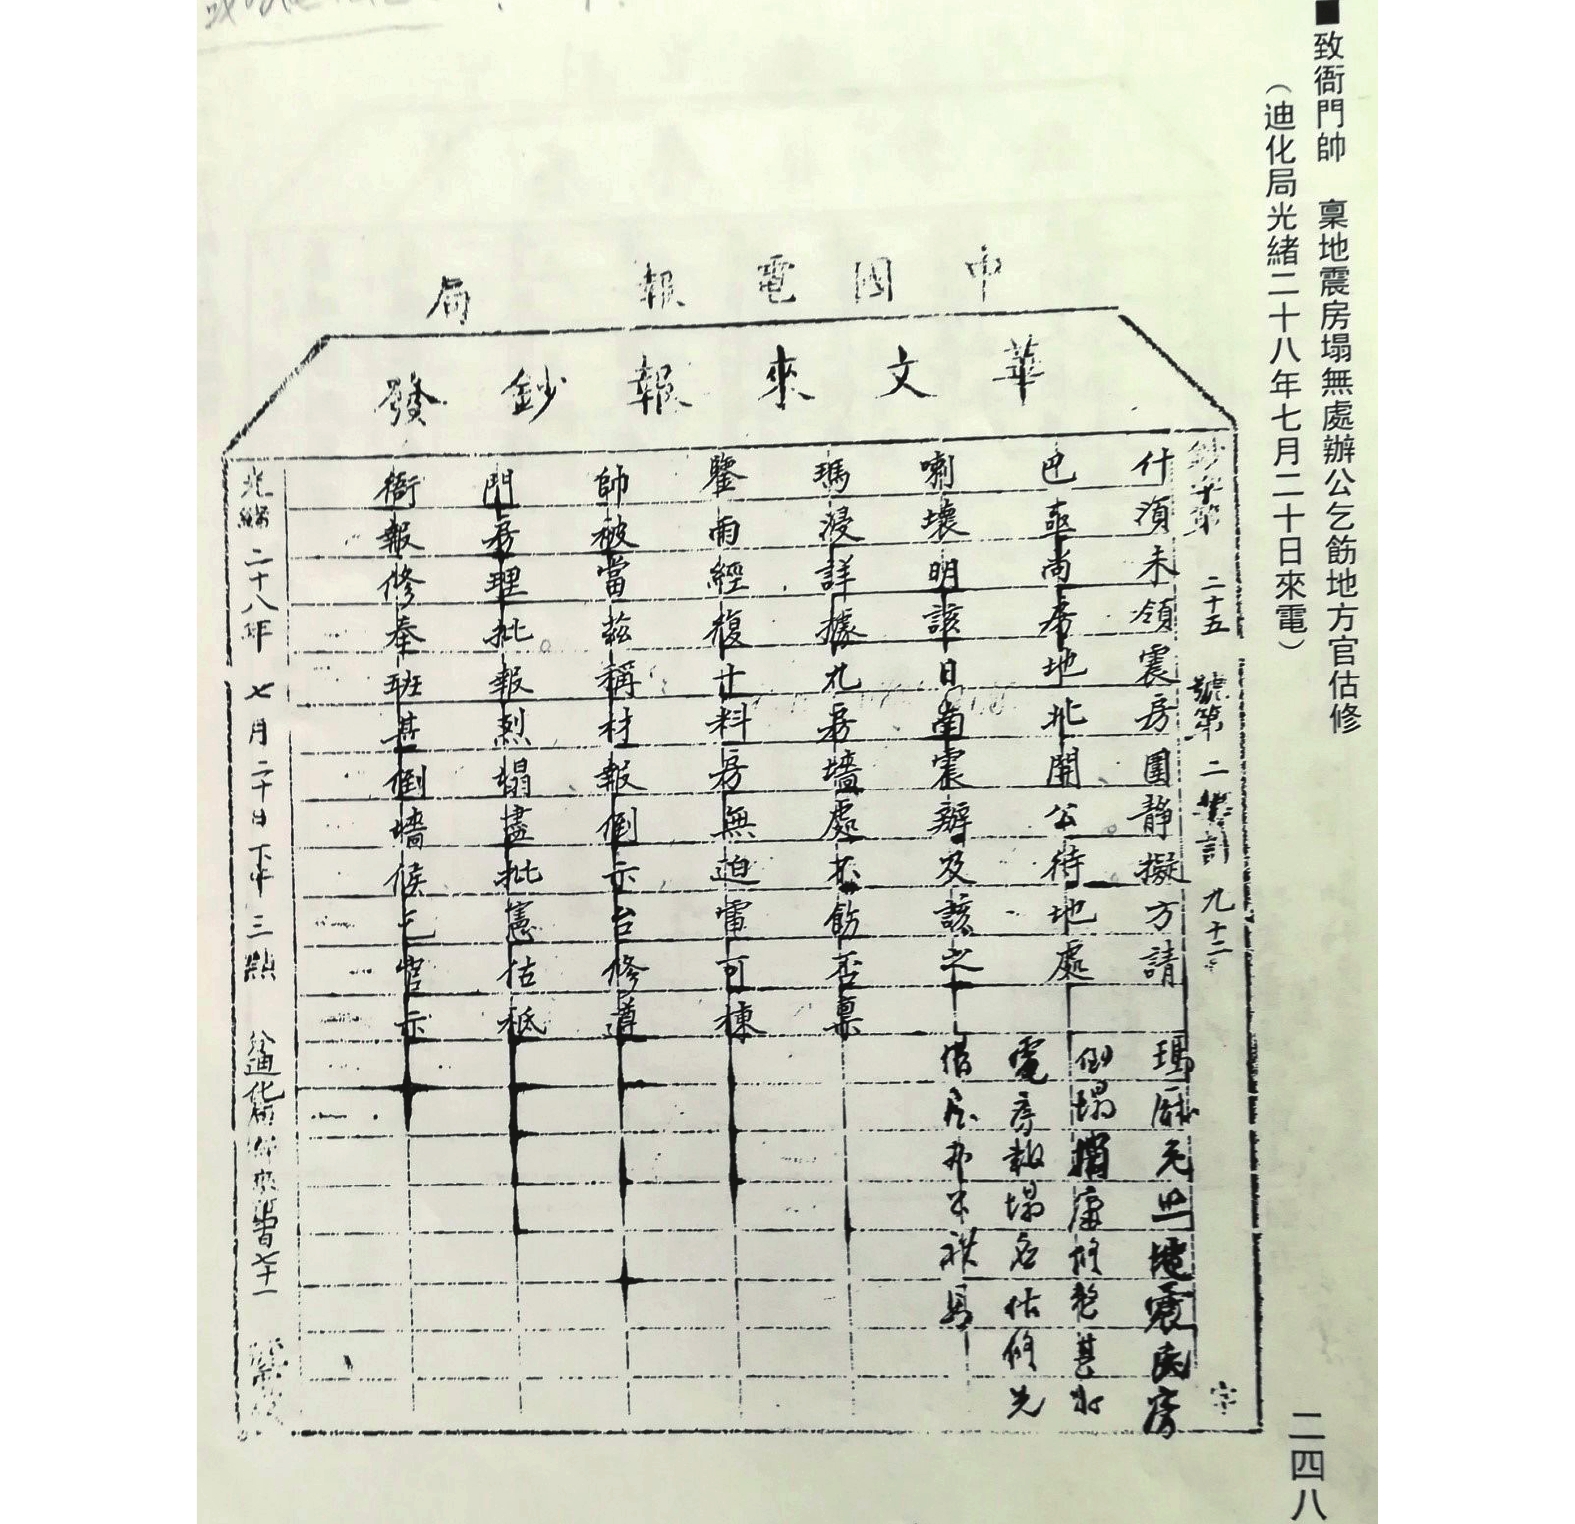 ■致衙門帥　稟地震房塌無處辦公乞飭地方官估修
（迪化局光緒二十八年七月二十日來電）
中國電報局
華文來報鈔發
二十五 號第 二 等計 九十二 字
衙門帥鑒瑪喇巴什
報房被雨浸壞亟須
修理當經詳明尚未
奉批茲復據該房領
班報稱十九日地震
甚烈材料房南北房
倒塌報房墻震開圍
墻盡倒無處辦公静
候批示迫不及待擬
乞憲台電飭該地方
官估修可否之處請
示祗遵棟稟
瑪 地震民房
倒塌 修 甚
電房報塌 估修先
借居
光緒 二十八年 七月 二十日 下午 三點 迪化
二四八